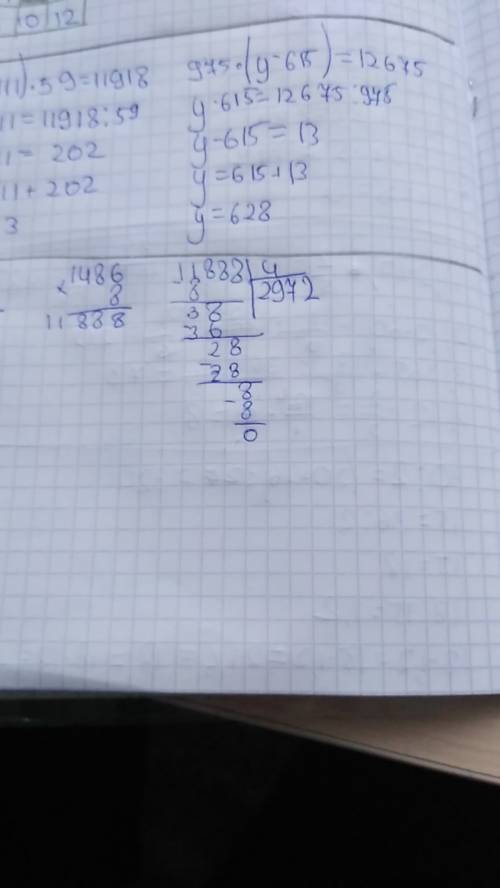 10 12
11).59=11918
11=11918:59
11= 202
11+202
3
975.(y-615)=12675
y-615=12675:975
y-615=13
y=615+13
y=628
1486
× 8
11888
11888 4
8 2972
38
36
28
-28
8
-8
0